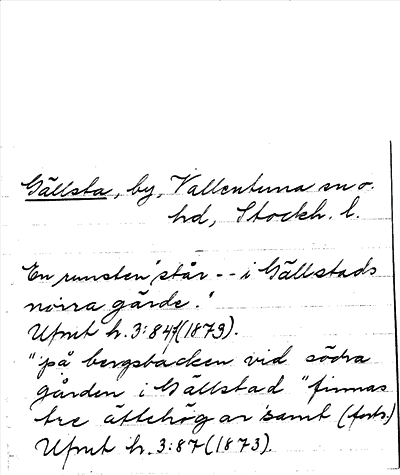 Gällsta, by, Vallentuna sn o.
hd, Stockh. l.
En runsten "står -- i Gällstads
norra gärde."
Ufmt h. 3:84 (1873).
"på bergsbacken vid södra
gården i Gällstad" finnas
tre ättehögar samt (forts.)
Ufmt h. 3:87 (1873).